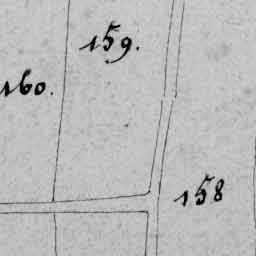 159.
160.
158